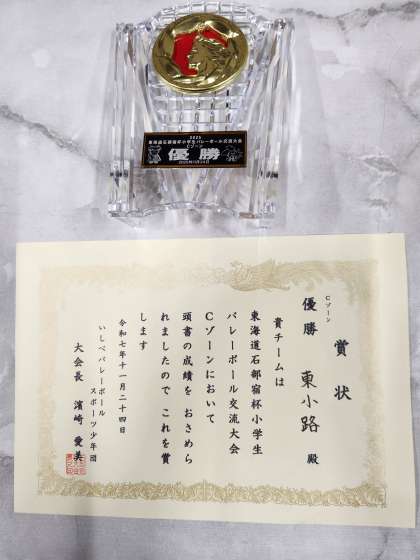 2025
東海道石部宿杯小学生バレーボール交流大会
Cゾーン
優勝
賞状
Cゾーン
優勝 東小路 殿
貴チームは
東海道石部宿杯小学生
バレーボール交流大会
Cゾーンにおいて
頭書の成績を おさめら
れましたので これを賞
します
令和七年十一月二十四日
いしべバレーボール
スポーツ少年団
大会長 濱崎 愛美